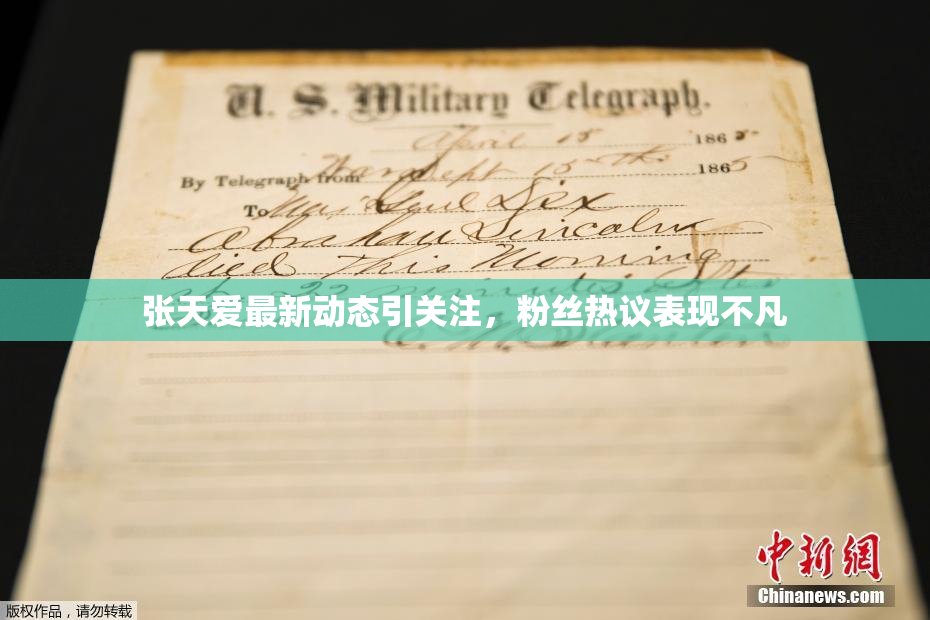 U. S. Military Telegraph.
April 15 1865
By Telegraph from War Dept 15th 1865
To Maj Genl Dix
Abraham Lincoln
died This Morning
at 22 minutes after
张天爱最新动态引关注，粉丝热议表现不凡
E. M. Stanton
中新网
Chinanews.com
版权作品，请勿转载